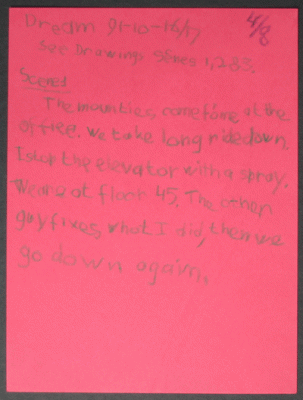 4/8
Dream 9-10-16/17
See Drawings Scenes 1,2&3.
Scene 1
The mounties come to me at the
office. We take long ride down.
I stop the elevator with a spray.
We are at floor 45. The other
guy fixes what I did, then we
go down again.